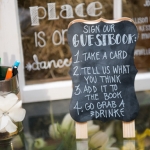 place
is on
dance
SIGN OUR
GUESTBOOK:
1 TAKE A CARD
2 TELL US WHAT
YOU THINK
3 ADD IT TO
THE BOOK
4 GO GRAB A
#DRINKE